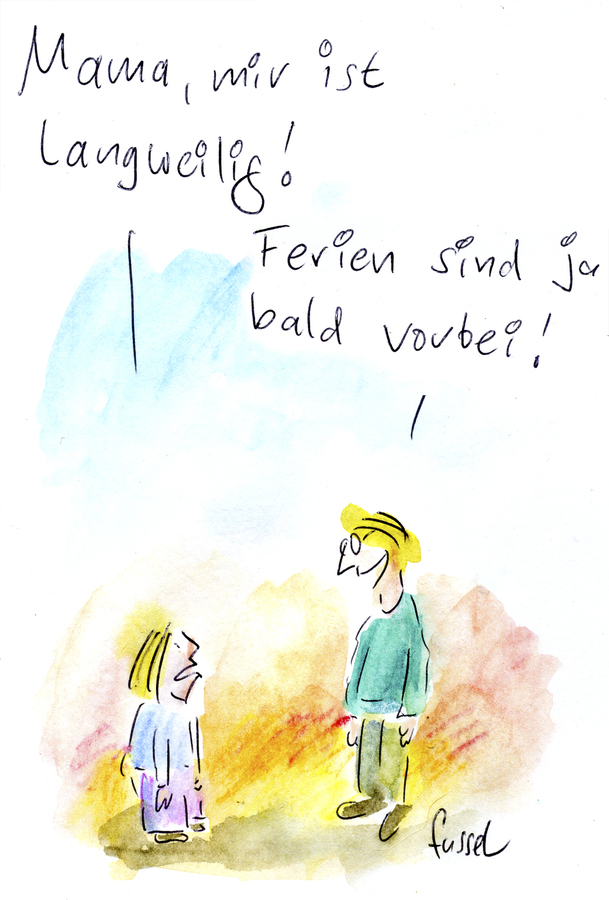 Mama, mir ist
Langweilig!
Ferien sind ja
bald vorbei!
fussel